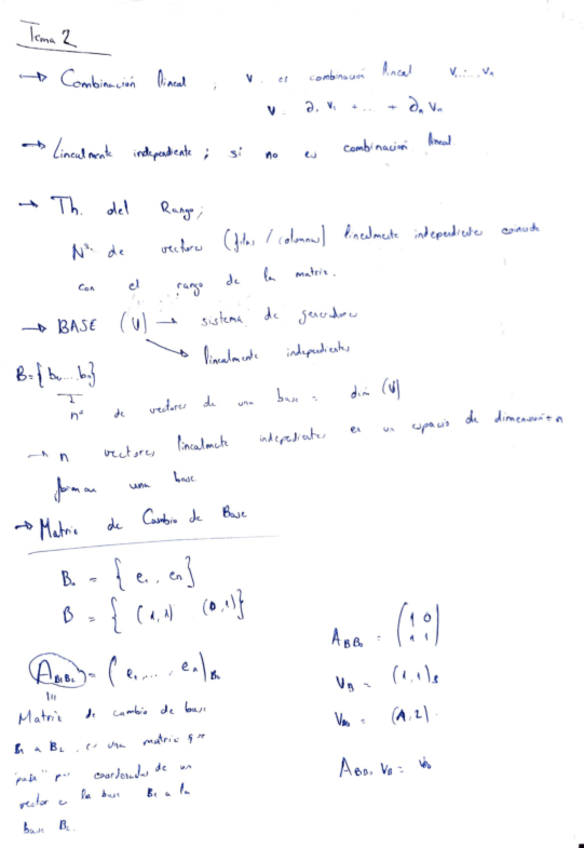 Tema 2
→ Combinación lineal ; v. es combinación lineal v₁...vₙ
v. ∂₁ v₁ + ... + ∂ₙ vₙ
→ Linealmente independiente ; si no es combinación lineal
→ Th. del Rango;
Nº de vectores (filas / columnas) linealmente independientes coincide
con el rango de la matriz.
→ BASE (V) → sistema de generadores
↘ linealmente independientes
B={b₁,...bₙ}
nº de vectores de una base = dim (V)
→ n vectores linealmente independientes en un espacio de dimensión n
forman una base
→ Matriz de Cambio de Base
B₀ = { e₁, eₙ}
B = { (1,1) (0,1)}
A_BB₀ = (1 0
1 1)
A_B₁B₂ = ( e₁, ... , eₙ)_B₂
V_B = (1,1)_B
V_B₀ = (1,2).
Matriz de cambio de base
B₁ a B₂, es una matriz que
A_BB₀ V_B = V_B₀
"pasa" por coordenadas de un
vector en la base B₁ a la
base B₂.